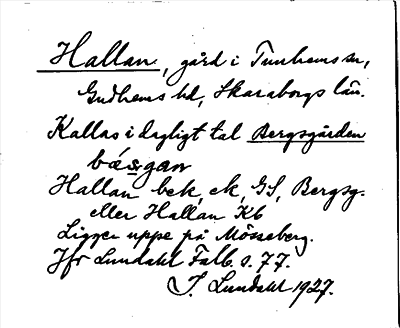 Hallan, gård i Tunhems sn,
Gudhems hd, Skaraborgs län.
Kallas i dagligt tal Bergsgården
bá̱s̱gan
Hallan bek, ek, GS, Bergsg.
eller Hallan Kb
Ligger uppe på Mösseberg.
Jfr Lundahl Falb. s. 77.
I. Lundahl 1927.